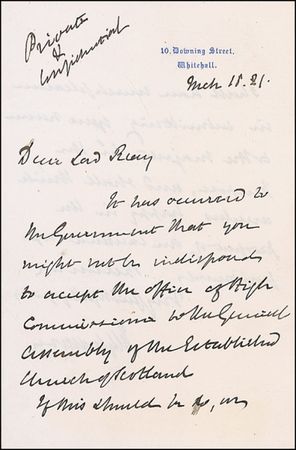 Private
&
Confidential
10, Downing Street,
Whitehall.
Mch
Dear Lord Reay
It has occurred to
the Government that you
might not be indisposed
to accept the office of High
Commissioner to the General
Assembly of the Established
Church of Scotland
If this should be so, on